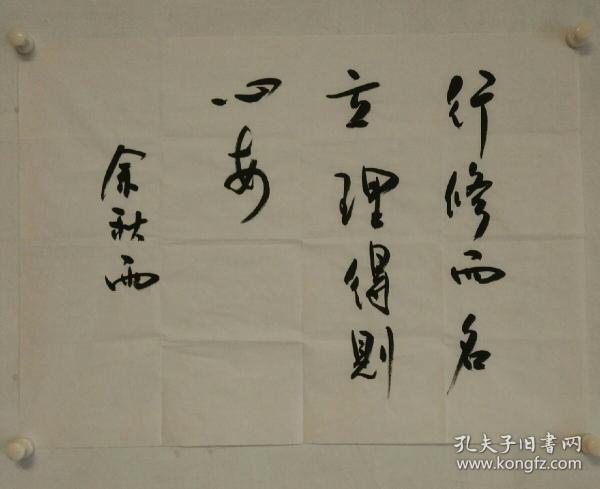 行修而名
立理得則
心安
余秋雨
孔夫子旧書网
www.kongfz.com